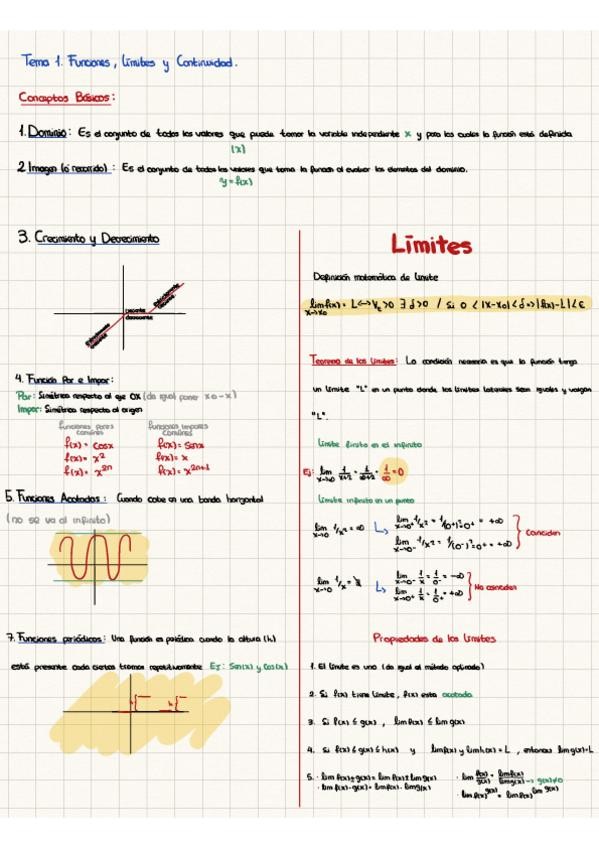 Tema 1. Funciones, Límites y Continuidad.
Conceptos Básicos:
1. Dominio: Es el conjunto de todos los valores que puede tomar la variable independiente x y para los cuales la función está definida
(x)
2. Imagen (o recorrido): Es el conjunto de todos los valores que toma la función al evaluar los elementos del dominio.
y=f(x)
3. Crecimiento y Decrecimiento
Creciente
decreciente
4. Función Par e Impar:
Par: Simétrica respecto al eje OX (da igual poner x o -x)
Impar: Simétrica respecto al origen
funciones pares comunes
f(x) = cosx
f(x) = x²
f(x) = x²ⁿ
funciones impares comunes
f(x) = sinx
f(x) = x
f(x) = x²ⁿ⁺¹
5. Funciones Acotadas: Cuando cabe en una banda horizontal
(no se va al infinito)
7. Funciones periódicas: Una función es periódica cuando la altura (h)
está presente cada ciertos tramos repetitivamente Ej: Sen(x) y Cos(x)
Límites
Definición matemática de límite
lim f(x) = L ⟷ ∀ε>0 ∃ δ>0 / Si 0 < |x-x0| < δ => |f(x)-L| < ε
x→x0
Teorema de los límites: La condición necesaria es que la función tenga
un límite "L" en un punto donde los límites laterales sean iguales y valgan
"L".
Límite finito en el infinito
Ej: lim 1/x+2 = 1/∞+2 = 1/∞ = 0
Límite infinito en un punto
lim x→0 1/x² = ∞
lim x→0⁺ 1/x² = 1/(0⁺)² = 0⁺ = +∞
lim x→0⁻ 1/x² = 1/(0⁻)² = 0⁺ = +∞
Coinciden
lim x→0 1/x = ∄
lim x→0⁻ 1/x = 1/0⁻ = -∞
lim x→0⁺ 1/x = 1/0⁺ = +∞
No coinciden
Propiedades de los límites
1. El límite es uno (da igual el método aplicado)
2. Si f(x) tiene límite, f(x) esta acotada
3. Si f(x) ≤ g(x), lim f(x) ≤ lim g(x)
4. Si f(x) ≤ g(x) ≤ h(x) y lim f(x) y lim h(x) = L, entonces lim g(x) = L
5. · lim f(x)+g(x) = lim f(x) + lim g(x)
· lim f(x)·g(x) = lim f(x) · lim g(x)
· lim f(x)/g(x) = lim f(x)/lim g(x) → g(x)≠0
· lim f(x)^g(x) = lim f(x)^lim g(x)